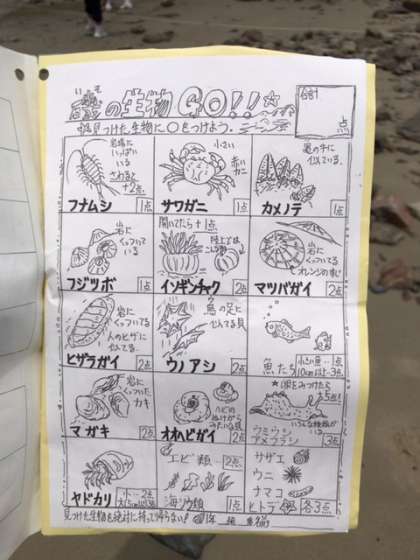 いそ
磯の生物GO!!☆
見つけた生物に○をつけよう.
合計
点
岩場に
いっぱい
いる
さわると
+2点
フナムシ
1点
小さい
赤い
カニ
サワガニ
1点
亀の手に
似ている.
カメノテ
1点
岩に
くっついて
いる
フジツボ
1点
開いてたら+1点
陸上では
イソギンチャク
2点
岩に
くっついてる
オレンジのすじ
マツバガイ
2点
岩に
くっついてる
人のヒザに
似てる.
ヒザラガイ
2点
鳥の足に
似てる貝
ウノアシ
2点
魚たち
小さい魚…1点
10cm以上…3点
岩に
くっついた
カキ
マガキ
2点
ヘビの
ぬけがら
みたいな貝
オオヘビガイ
2点
★卵をみつけたら
も5点!
ウミウシ
アメフラシ
いろんな種類が
いる
3点
ヤドカリ
小…2点
エビ類…2点
海ソウ類
1点
サザエ
ウニ
ナマコ
ヒトデ
各3点
見つけた生物を絶対に持って帰らない!
1年 組 名前